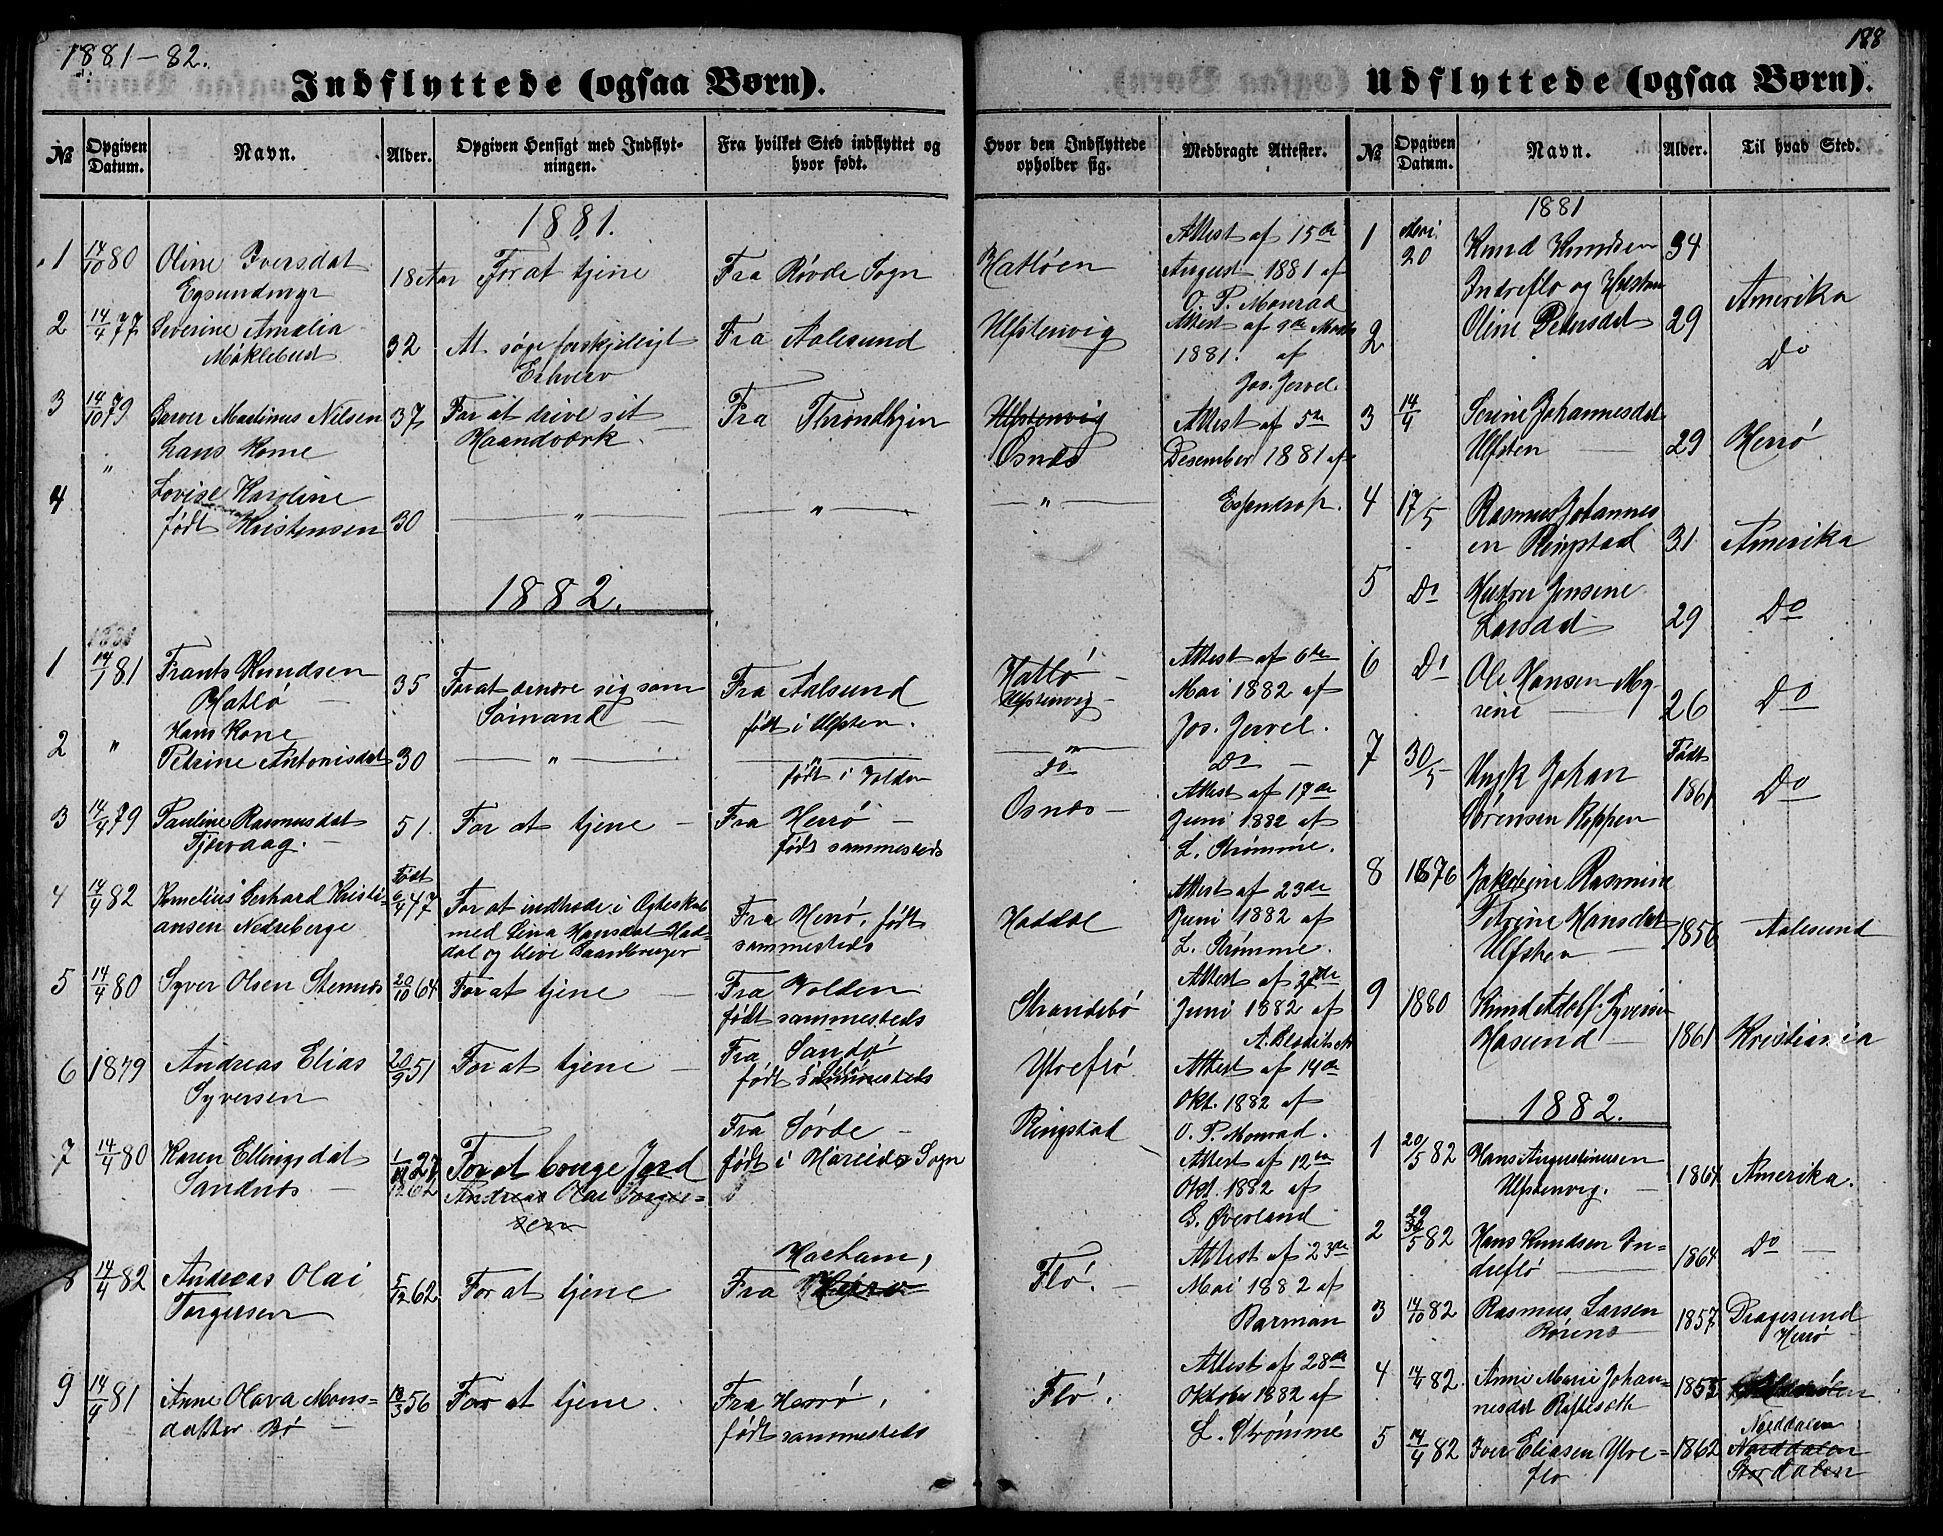 1881-82.
188
Indflyttede (ogsaa Børn).
Udflyttede (ogsaa Børn).
№
Opgiven Datum.
Navn.
Alder.
Opgiven Hensigt med Indflyt-
ningen.
Fra hvilket Sted indflyttet og
hvor født.
Hvor den Indflyttede
opholder sig.
Medbragte Attester.
№
Opgiven Datum.
Navn.
Alder.
Til hvad Sted.
1881.
1 14/10 80 Oline Iversdat 18 Aar For at tjene Fra Røvde Sogn Hatløen Attest af 15de
Egsundmyr August 1881 af
O. P. Monrad
2 14/4 77 Severine Amalia 32 At søge forskjelligt Fra Aalesund Ulfstenvig Attest af 9de
Møklebust Erhverv 1881. af
Jos. Jervel.
3 14/10 79 Martinus Nilsen 37 For at drive sit Fra Throndhjem Ulfstenvig Attest af 5te
Hans Kone Haandværk. Osnæs Desember 1881 af
4 " Lovise Karoline Essendrop.
født Kristensen 30 " " "
1882.
1 14/1 81 Frants Knudsen 35 For at ernære sig som Fra Aalsund Hatlø Attest af 6te
Hatlø Sømand født i Ulfsten. Ulfstenvig Mai 1882 af
Hans Kone Jos. Jervel.
2 " Petrine Antonisdat 30 " " Do Do
født i Volden
3 14/4 79 Pauline Rasmusdat 51. For at tjene Fra Herrø Osnæs Attest af 17de
Tjørvaag. født sammesteds Juni 1882 af
L. Strømme.
4 14/4 82 Kornelius Gerhard Kristi- Født 6/4 47 For at indtræde i Egteskab Fra Herø, født Haddal Attest af 23de
ansen Nedreberge med Lina Hansdat Had- sammesteds Juni 1882 af
dal og blive Gaardbruger L. Strømme.
5 14/4 80 Syver Olsen Stennæs 20/10 64 For at tjene Fra Volden Strandebø Attest af 27de
født sammesteds Juni 1882 af
6 1879 Andreas Elias 20/9 51 For at tjene Fra Sandø Ytreflø Attest af 14de
Syversen født sammesteds Okt. 1882 af
O. P. Monrad.
7 14/4 80 Karen Ellingsdat 27 For at bruge Jord Fra Sørde Ringstad Attest af 12te
Sandnæs Andreas Olai Torger- født i Hareids Sogn Okt. 1882 af
sen G. Øverland
8 14/4 82 Andreas Olai 5/12 62 For at tjene Fra Herø Flø. Attest af 23de
Torgersen Haeham, Mai 1882 af
Barman
9 14/4 81 Anne Olava Mons- 18/3 56 For at tjene. Fra Herrø, Flø. Attest af 28de
datter Bø født sammesteds Oktober 1882 af
L. Strømme
1881
1 20 Knud Knudsen 34
Indreflø og Hustru Amerika
2 Oline Petersdat 29 Do
3 14/4 Serine Johannesdat
Ulfsten 29 Herrø
4 17/5 Rasmus Johannes
en Ringstad 31 Amerika
5 Do Hustru Jensine
Larsdat 29 Do
6 Do Ole Hansen My-
rene 26 Do
7 30/5 Johan Født
Sørensen Reppen 1861 Do
8 1876 Jakobine Rasmine
Petrine Hansdat 1856 Aalesund
Ulfsten
9 1880 Knud Adolf Syversen
Hasund 1861 Kristiania
1882.
1 20/5 82 Hans Augustinussen
Ulfstenvig. 1864 Amerika.
2 29/5 82 Hans Knudsen In-
dreflø 1864 Do
3 14/10 82 Rasmus Larsen 1857 Dragesund
Rørene Herrø
4 14/4 82. Anne Marie Johan- 1855
nesdat Røfteseth Norddalen
5 14/4 82 Iver Eliasen Ytre- 1862 Norddalen
flø Stordalen